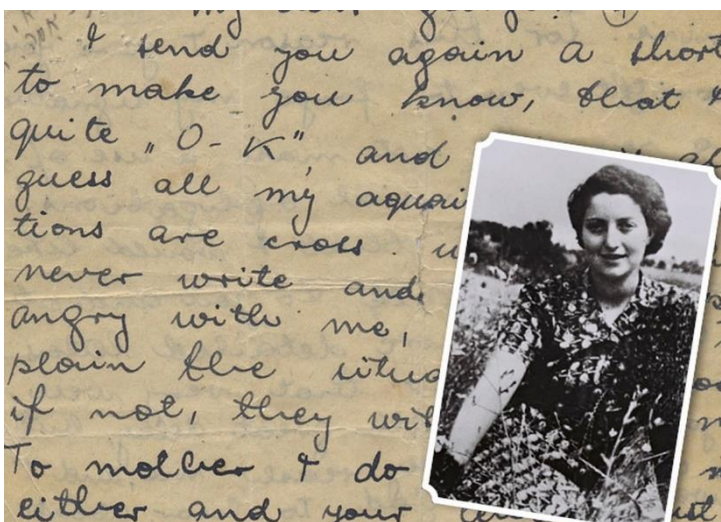 I send you again a short
to make you know, that I
quite „O-K", and
guess all my aquai
tions are cross
never write and
angry with me,
plain the situa
if not, they wi
To mother I do
either and your